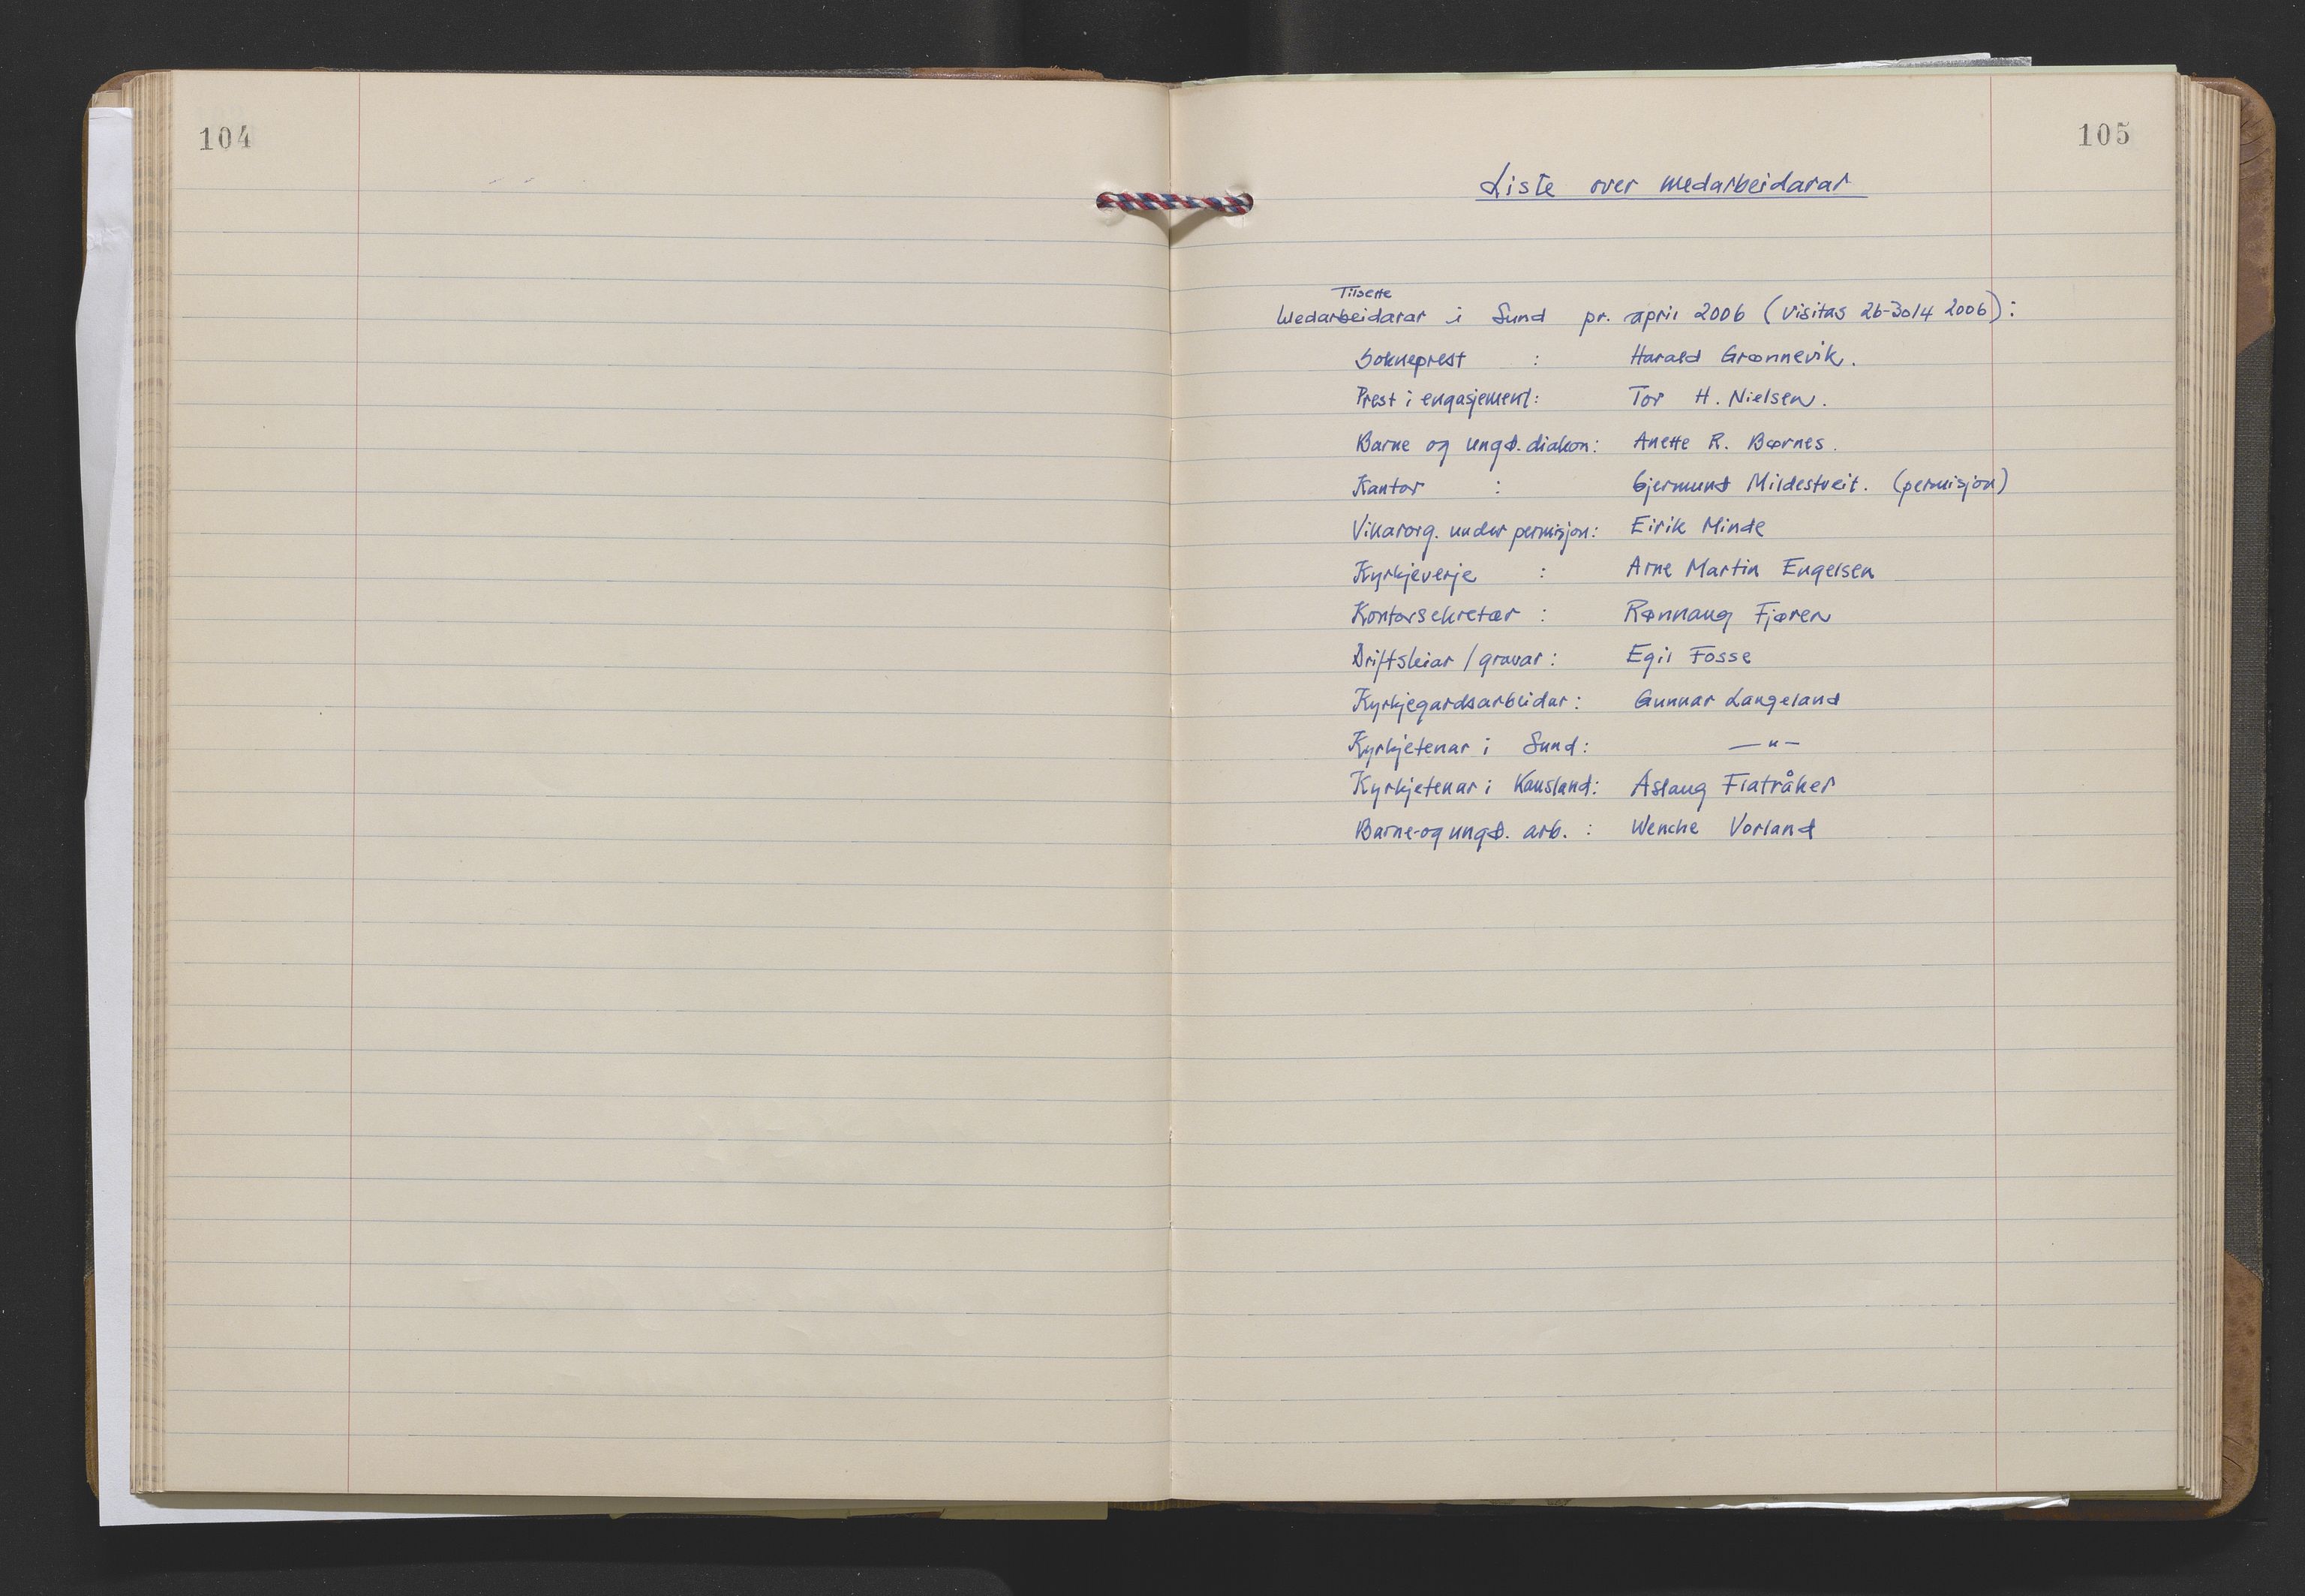 104
105
Liste over medarbeidarar
Tilsette
Medarbeidarar i Sund pr. april 2006 (visitas 26-30/4 2006):
Sokneprest : Harald Grønnevik.
Prest i engasjement: Tor H. Nielsen.
Barne og ungd. diakon: Anette R. Børnes.
Kantor : Gjermund Mildestveit. (permisjon)
Vikarorg. under permisjon: Eirik Minde
Kyrkjeverje : Arne Martin Engelsen
Kontorsekretær : Rønnaug Fjæren
Driftsleiar / gravar: Egil Fosse
Kyrkjegardsarbeidar: Gunnar Langeland
Kyrkjetenar i Sund: — " —
Kyrkjetenar i Kausland: Åslaug Flatråker
Barne-og ungd. arb. : Wenche Vorland